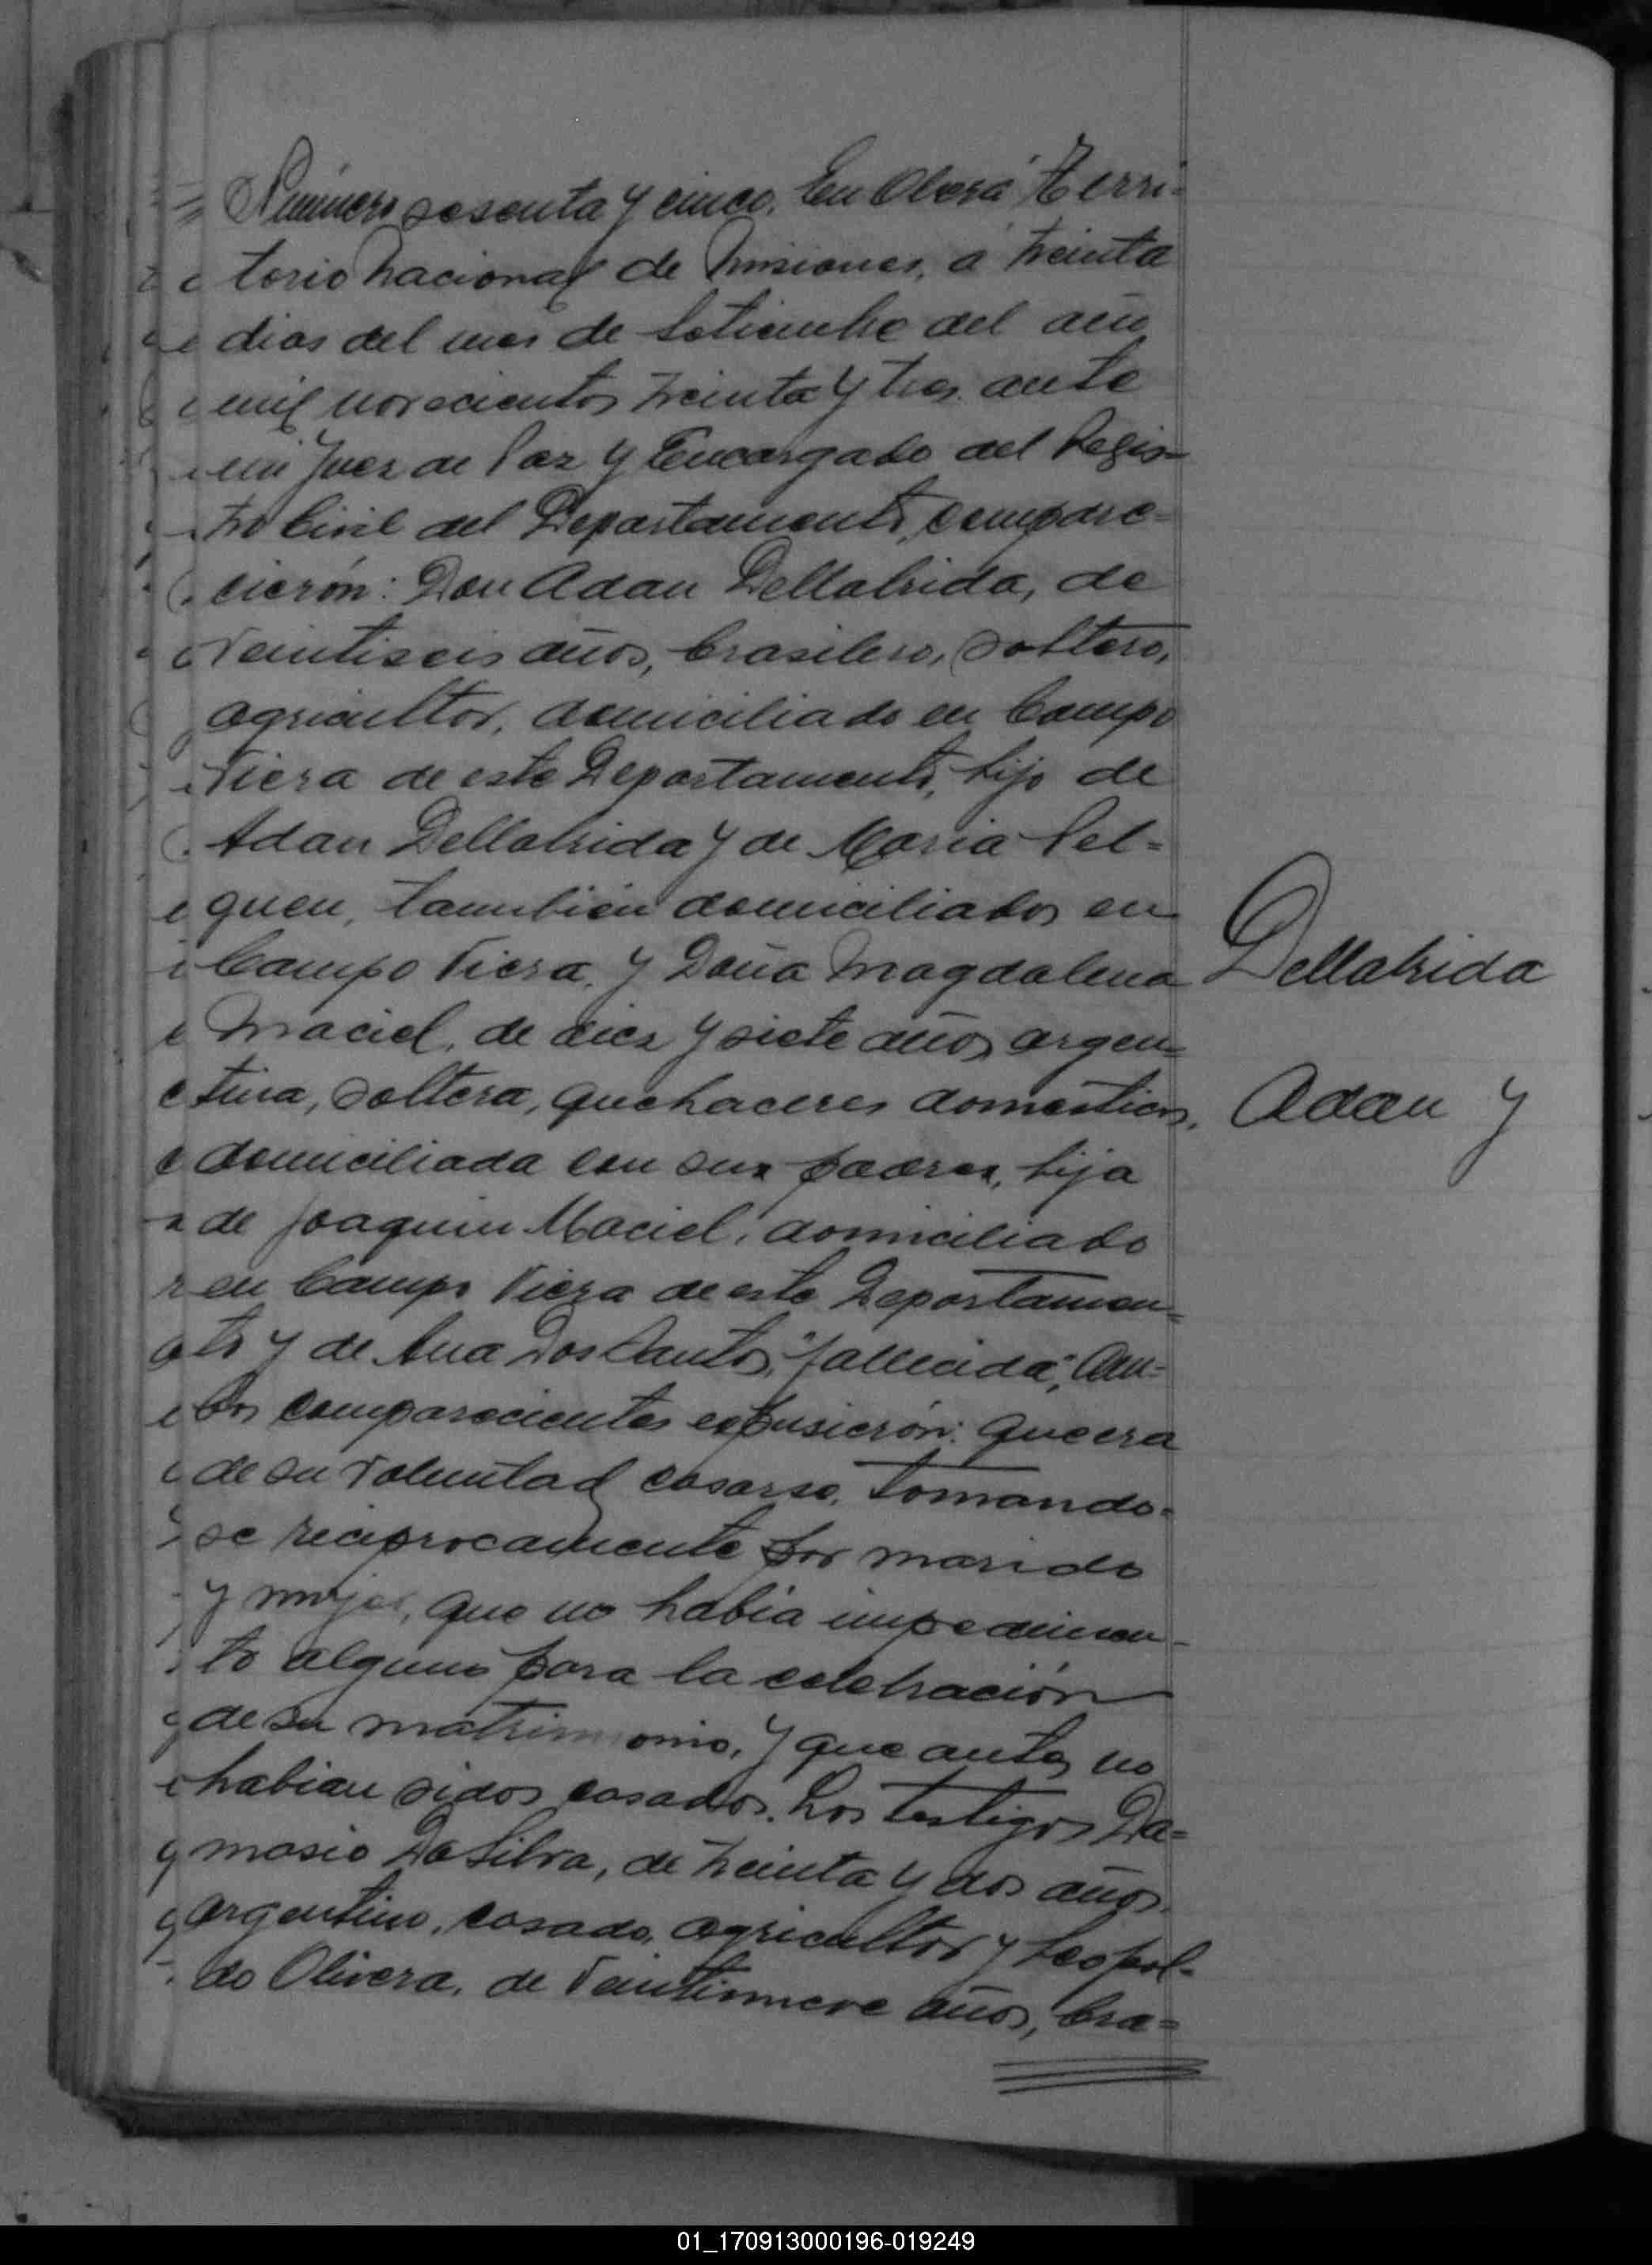 Número sesenta y cinco. En Oberá Terri-
torio Nacional de Misiones, á treinta
dias del mes de Setiembre del año
mil novecientos treinta y tres, ante
mi Juez de Paz y Encargado del Regis-
tro Civil del Departamento, compare-
cierón: Don Adan Dellabrida, de
veintiseis años, brasilero, soltero,
agricultor, domiciliado en Campo
Viera de este Departamento, hijo de
Adan Dellabrida y de Maria Pel-
quen, tambien domiciliados en
Campo Viera, y Doña Magdalena
Maciel, de diez y siete años argen-
tina, soltera, quehaceres domesticos,
domiciliada con sus padres, hija
de Joaquin Maciel, domiciliado
en Campo Viera de este Departamen-
to y de Ana Dos Santos, "fallecida", Am-
bos comparecientes expusierón: que era
de su voluntad casarse, tomando-
se reciprocamente por marido
y mujer, que no habia impedimen-
to alguno para la celebración
de su matrimonio, y que antes no
habian sidos casados. Los testigos Da-
masio Da Silva, de treinta y dos años,
argentino, casado, agricultor y Leopol-
do Olivera, de veintinueve años, bra-
Dellabrida
Adan y
01_170913000196-019249